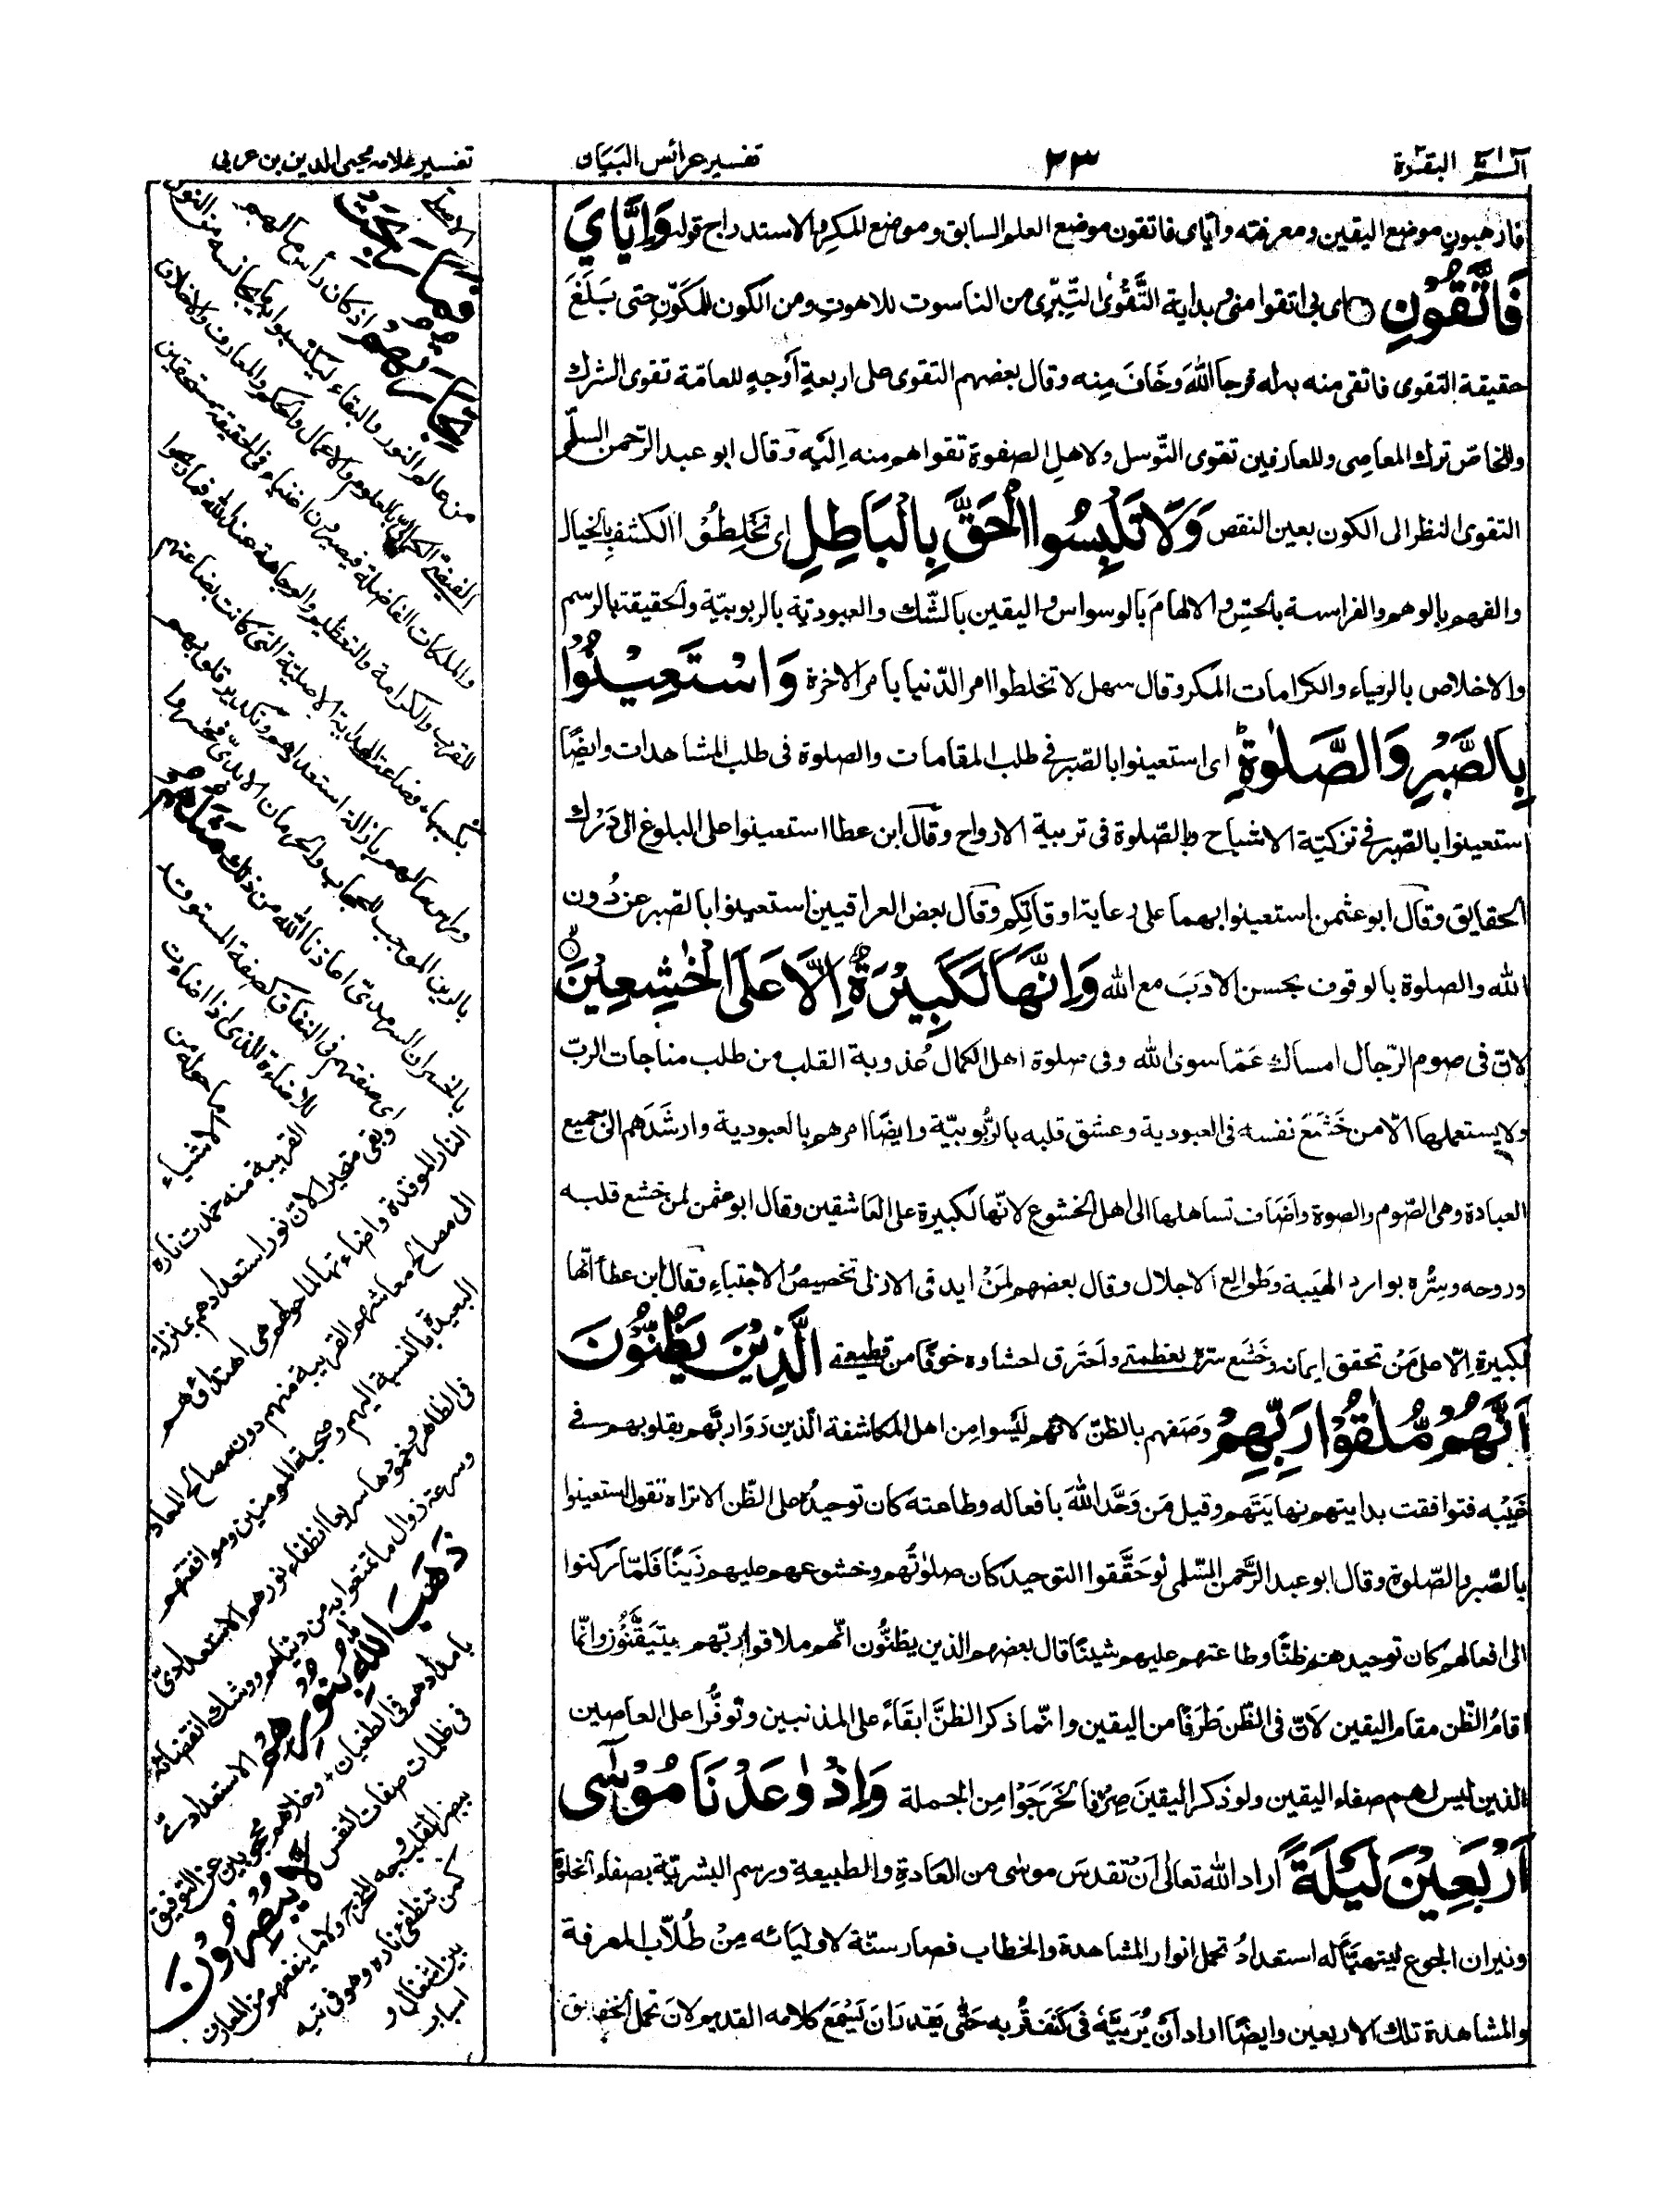 الٓمّٓ البقرة
٢٣
تفسير عرائس البيان
تفسير علامه محيى الدين بن عربى
فارهبون موضع اليقين ومعرفته واياى فاتقون موضع العلم السابق وموضع المكر والاستدراج قوله وَاِيَّايَ
فَاتَّقُوْنِ اى بى اتقوا منى وبداية التَّقْوٰى التّبرّى من الناسوت للاهوت ومن الكون للمكوّن حتى بَلَغَ
حقيقة التقوى فاتقى منه به له فرجا اللهَ وخَافَ مِنه وقال بعضهم التقوى على اربعةِ اَوجهٍ للعامّة تقوى الشرك
وللخاصّ ترك المعاصى وللعارفين تقوى التّوسل ولاهلِ الصفوة تقواهم منه اِليَه وقال ابو عبد الرّحمن السلّمى
التقوى النظر الى الكون بعين النقص وَلَا تَلْبِسُوا الْحَقَّ بِالْبَاطِلِ اى تَخْلِطُوْا الكشف بالخيال
والفهم بالوهم والفراسة بالحسّ والالهامَ بالوسواس واليقين بالشّك والعبوديّة بالربوبيّة والحقيقة بالرسم
والاخلاص بالرياء والكرامات المكر وقال سهل لا تخلطوا امر الدّنيا بامر الاخرة وَاسْتَعِيْنُوْا
بِالصَّبْرِ وَالصَّلٰوةِ اى استعينوا بالصّبر فى طلب المقامات والصلوة فى طلب المشاهدات وايضًا
استعينوا بالصّبر فى تزكيّة الاشباح وبالصّلوة فى تربية الارواح وقال ابن عطا استعينوا على البلوغ الى دَرْك
الحقايق وقال ابو عثمن استعينوا بهما على رعاية اوقاتِكم وقال بعض العراقيين استعينوا بالصّبر عن دُون
الله والصلوة بالوقوف بحسن الادَبَ مع الله وَاِنَّهَا لَكَبِيْرَةٌ اِلَّا عَلَى الْخٰشِعِيْنَ
لانّ فى صوم الرّجال امساك عَمّا سوى الله وفى صلوة اهل الكمال عُذوبة القلب من طلب مناجات الربّ
ولا يستعملها الّا من خَشَعَ نفسه فى العبودية وعشق قلبه بالرُّبوبيّة وايضًا امرهم بالعبودية وارشَدَهم الى جميع
العبادة وهى الصّوم والصوة واضَاف تساهلها الى اهل الخشوع لانّها لكبيرة على العَاشقين وقال ابو عثمن لمن خشع قلبه
وروحه وسِرُّه بوارد الهَيبة وطَوالِع الاجلال وقال بعضهم لمَنْ ايد فى الازل تخصيصُ الاجتباءِ وقال ابن عطا انّها
لكبيرة اِلّا على مَنْ تحقق ايمانه وخَشَع سرّه لعظمتى واحتَرق لحشاده خوفًا من قطيعتى الَّذِيْنَ يَظُنُّوْنَ
اَنَّهُمْ مُّلٰقُوْا رَبِّهِمْ وصَفهم بالظنّ لانّهم لَيسوا مِن اهل المكاشفة الّذين رَوَا ربَّهم بقلوبهم فى
غَيْبه فتوافقت بدايتهم نهايَتَهم وقيل مَن وَحَّد اللهَ بافعاله وطاعته كان توحيدُه على الظّن الا تراه تقول استعينوا
بالصّبر والصّلوةِ وقال ابو عبد الرَّحمن السّلمى لوحَقَّقوا التوحيد كان صلوٰتُهم وخشوعهم عليهم زَينًا فَلمّا ركنوا
الى افعالهم كان توحيدهم ظنًّا وطاعتهم عليهم شينًا قال بعضهم الذين يظنُّون انّهم ملاقوا ربّهم يتيَقَّنُوْن وانّما
اقامُ الظّن مقام اليقين لانّ فى الظّن طَرَفًا من اليقين وانّما ذكر الظنَّ ابقَاءً على المذنبين وتوفُّرا على العاصين
الذين ليس لهم صفاء اليقين ولو ذكر اليقينَ صِرْفًا لخرَجَوْا مِن الجملة وَاِذْ وٰعَدْنَا مُوْسٰٓى
اَرْبَعِيْنَ لَيْلَةً اراد الله تعالى اَنْ تقدسَ موسٰى من العَادةِ والطبيعةِ ورسم البشريّة بصفاء الخلوة
ونيران الجوع ليتهيَّأ له استعدادُ تحمل انوار المشاهدة والخطاب فصار سنّة لاوليَائه مِنْ طُلّاب المعرفة
والمشاهدة تلك الاربعين وايضًا اراد اَنْ يُرَبِيَّهٗ فى كَنَفِ قُربه حَتّٰى يَقدرَ اَن يَسْمَعَ كلامه القديم ولانَ تحمل الحقايق
فَمَا رَبِحَتْ
تِّجَارَتُهُمْ اذ كان رأس مالهم
من عالم النور والبقاء ليكتسبوا به ما يجانسه من النور
بالعلوم والاعمال والحكم والمعارف والاخلاق
والملكات الفاضلة فيصيرون اغنياء فى الحقيقة مستحقين
للقرب والكرامة والتعظيم والوجاهة عند الله فما ربحوا
بكسبها وضاعت الهداية الاصليّة التى كانت بضاعتهم
وراس مالهم بازالة استعدادهم وتكدير قلوبهم
بالرين الموجب للحجاب والحرمان الابدىّ فخسروا
بالخسران السرمدىّ اعاذنا الله من ذلك مَثَلُهُمْ
اى صفتهم فى النفاق كصفة المستوقد
للاضاءة الذى اذا اضاءت
ما حوله من
الاشياء
القريبة منه خمدت ناره
وبقى متحيرا لانّ نور استعدادهم بمنزلة
النار الموقدة واضاءتها لما حولهم هى اهتداؤهم
الى مصالح معاشهم القريبة منهم دون مصالح المعاد
البعيدة بالنسبة اليهم وصحبة المومنين وموافقتهم
فى الظاهر وخمودها سريعا انطفاء نورهم الاستعدادىّ
وسرعة زوال ما تمتعوا به من دنياهم ووشك انقضائه
ذَهَبَ اللهُ بِنُوْرِهِمْ الاستعدادىّ
بامدادهم فى الطغيان وخلاهم محجوبين عن التوفيق
فى ظلمات صفات النفس لَا يُبْصِرُوْنَ
ببصر القلب وجه المخرج ولا ما ينفعهم من المعارف
كمن تنطفئ ناره وهو فى تيه
بين اشغال و
اسباب